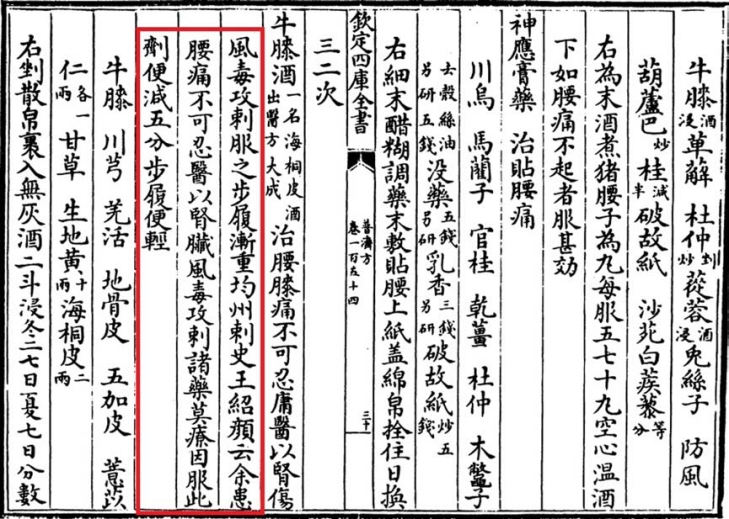 牛膝酒浸 萆薢 杜仲剉炒 蓯蓉酒浸 兎絲子 防風
葫蘆巴炒 桂減半 破故紙 沙苑白蒺藜等分
右為末酒煮猪腰子為丸每服五七十丸空心温酒
下如腰痛不起者服甚効
神應膏藥 治貼腰痛
川烏 馬藺子 官桂 乾薑 杜仲 木鼈子
去殻絲油另研五錢 没藥五錢另研 乳香三錢另研 破故紙炒五錢
右細末醋糊調藥末敷貼腰上紙盖綿帛拴住日換
欽定四庫全書
普濟方
卷一百五十四
三十
三二次
牛膝酒一名海桐皮酒出醫方大成 治腰膝痛不可忍庸醫以腎傷
風毒攻刺服之步履漸重均州刺史王紹顔云余患
腰痛不可忍醫以腎臟風毒攻刺諸藥莫療因服此
劑便減五分步履便輕
牛膝 川芎 羌活 地骨皮 五加皮 薏苡
仁各一兩 甘草 生地黄十兩 海桐皮二兩
右剉散帛裹入無灰酒二斗浸冬二七日夏七日分數